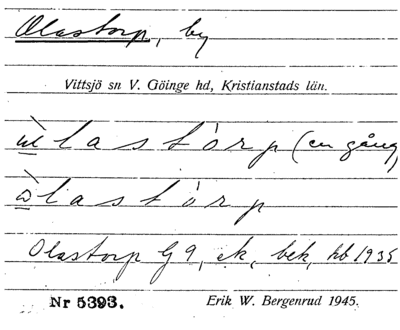 Olastorp, by
Vittsjö sn V. Göinge hd, Kristianstads län.
ùlastórp (en gång)
òlastórp
Olastorp G 9, ek, bek, hb 1935
Nr 5393. Erik W. Bergenrud 1945.